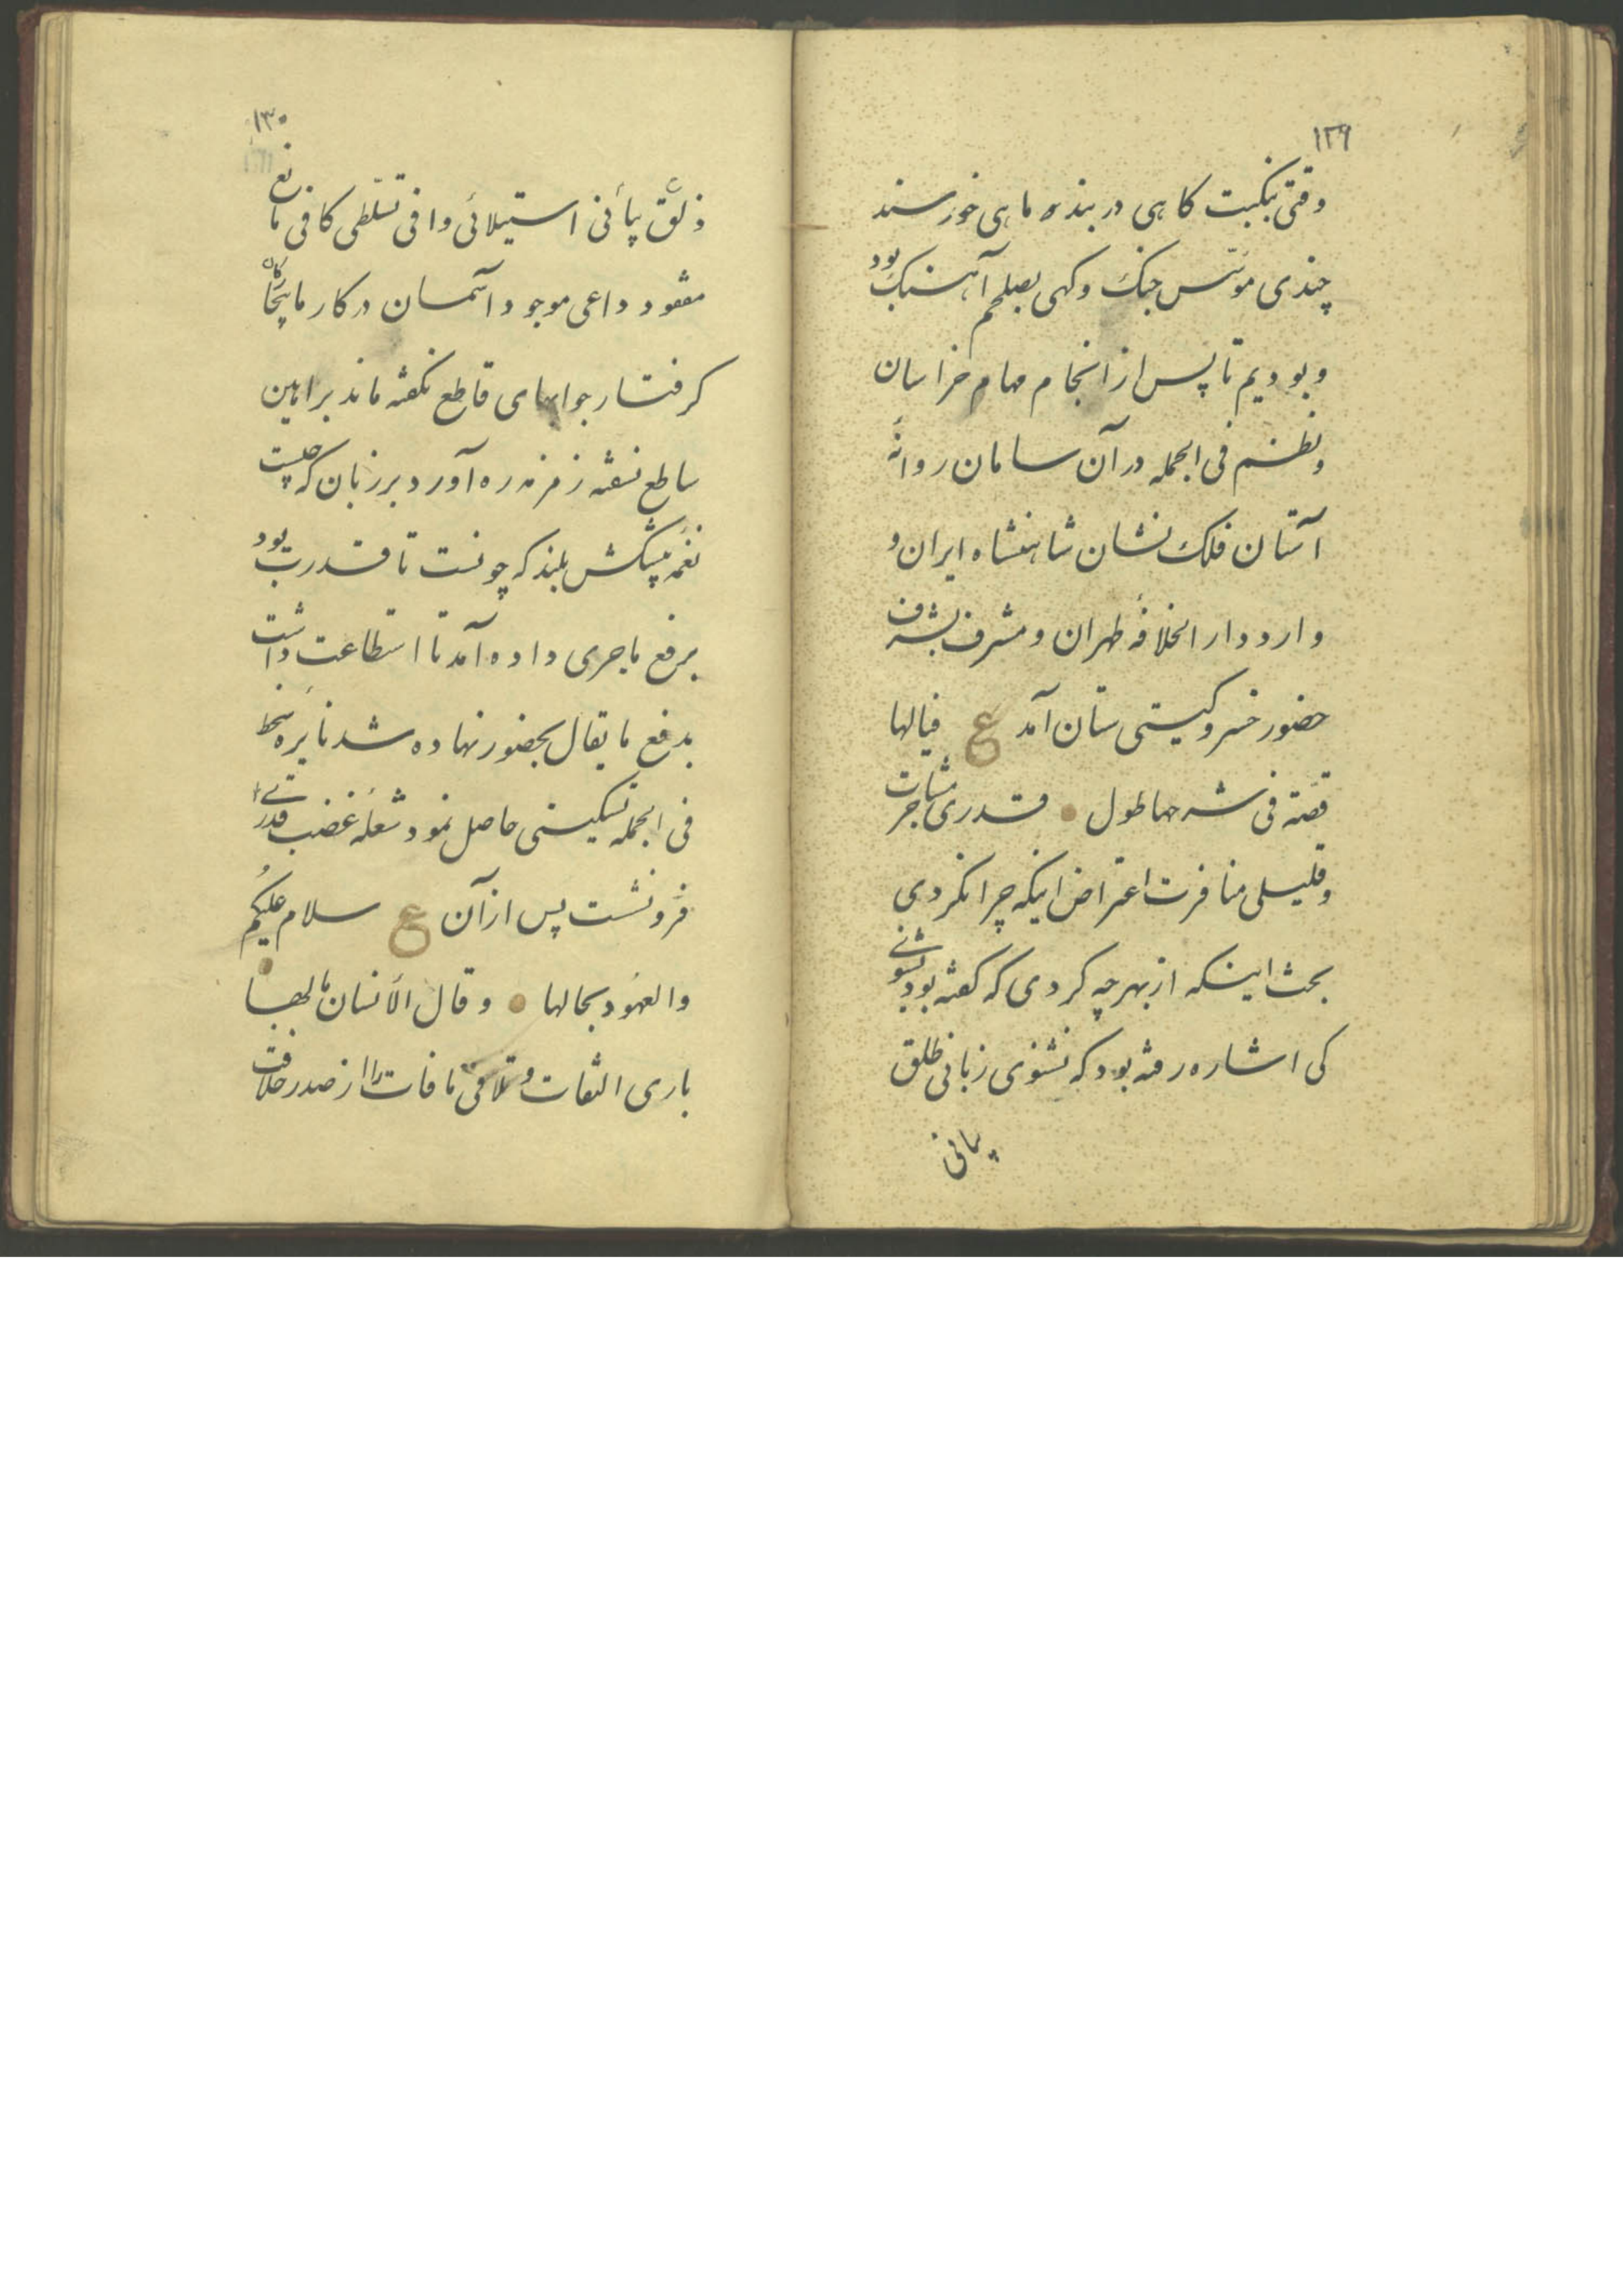 ۱۲۹
وقتی بنکبت کاهی در بند ماهی خورسند
چندی مونس جنک و کهی بصلحم آهنک بود
و بودیم تا پس از انجام مهام خراسان
و نظم فی الجمله در آن سامان روانهٔ
آستان فلک نشان شاهنشاه ایران و
وارد دار الخلافهٔ طهران و مشرف بشرف
حضور خسرو کیتی ستان آمد ع فیالها
قصّة فی شرحها طول قدری مشاجرت
و قلیلی منافرت اعتراض اینکه چرا نکردی
بحث اینکه از بهر چه کردی که کفته بود بشنوی
کی اشاره رفته بود که نشنوی زبانی طلق
بیانی
۱۳۰
و ذلق بیانی استیلائی وافی تسلّطی کافی مانع
مفقود داعی موجود آسمان در کار ما
کرفتار جوابهای قاطع نکفته ماند براهین
ساطع نسفته زمزمه ره آورد بر زبان که چیست
نغمه پیشکش بلند که چونست تا قدرت بود
برفع ماجری داده آمد تا استطاعت داشت
بدفع ما یقال بحضور نهاده شد نایره سخط
فی الجمله تسکینی حاصل نمود شعلهٔ غضب قدری
فرو نشست پس از آن ع سلام علیکم
والعهود بحالها و قال الأنسان مالها
باری التفات و تلافی مافات را از صدر خلافت